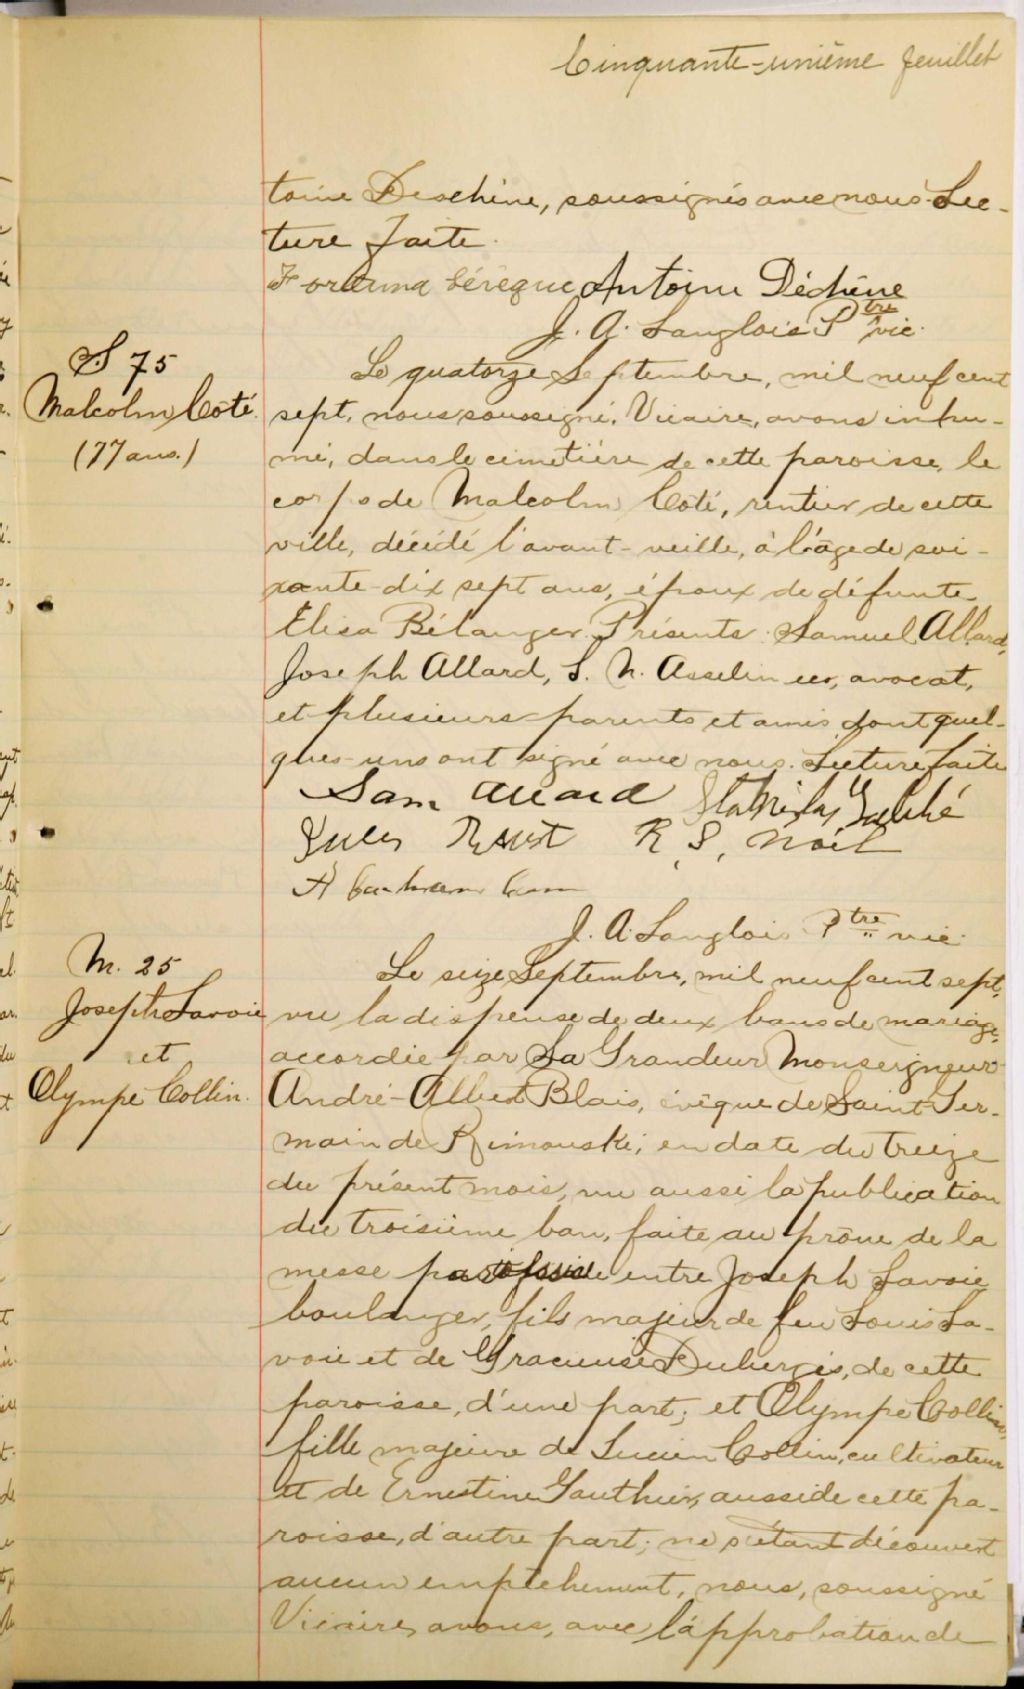 Cinquante-unième feuillet
toine Deschène, soussignés avec nous. Lec-
ture faite.
Antoine Déchène
J. A. Langlois Ptre vic.
S 75
Malcolm Côté.
(77 ans.)
Le quatorze Septembre, mil neuf cent
sept, nous soussigné, Vicaire, avons inhu-
mé, dans le cimetière de cette paroisse, le
corps de Malcolm Côté, rentier de cette
ville, décédé l'avant-veille, à l'âge de soi-
xante-dix sept ans, époux de défunte
Elisa Bélanger. Présents: Samuel Allard,
Joseph Allard, L. N. Asselin ecr, avocat,
et plusieurs parents et amis dont quel-
ques-uns ont signé avec nous. Lecture faite
Sam Allard Stanislas
Jules R. S. Noël
J. A. Langlois Ptre vic.
M. 25
Joseph Savoie
et
Olympe Collin.
Le seize Septembre, mil neuf cent sept,
vu la dispense de deux bans de mariage,
accordée par Sa Grandeur Monseigneur
André-Albert Blais, évêque de Saint Ger-
main de Rimouski, en date du treize
du présent mois, vu aussi la publication
du troisième ban, faite au prône de la
messe paroissiale entre Joseph Savoie
boulanger, fils majeur de feu Louis Sa-
voie et de Gracieuse Duberger, de cette
paroisse, d'une part; et Olympe Collin,
fille majeure de Lucien Collin, cultivateur
et de Ernestine Gauthier, aussi de cette pa-
roisse, d'autre part; ne s'étant découvert
aucun empêchement, nous, soussigné
Vicaire, avons, avec l'approbation de